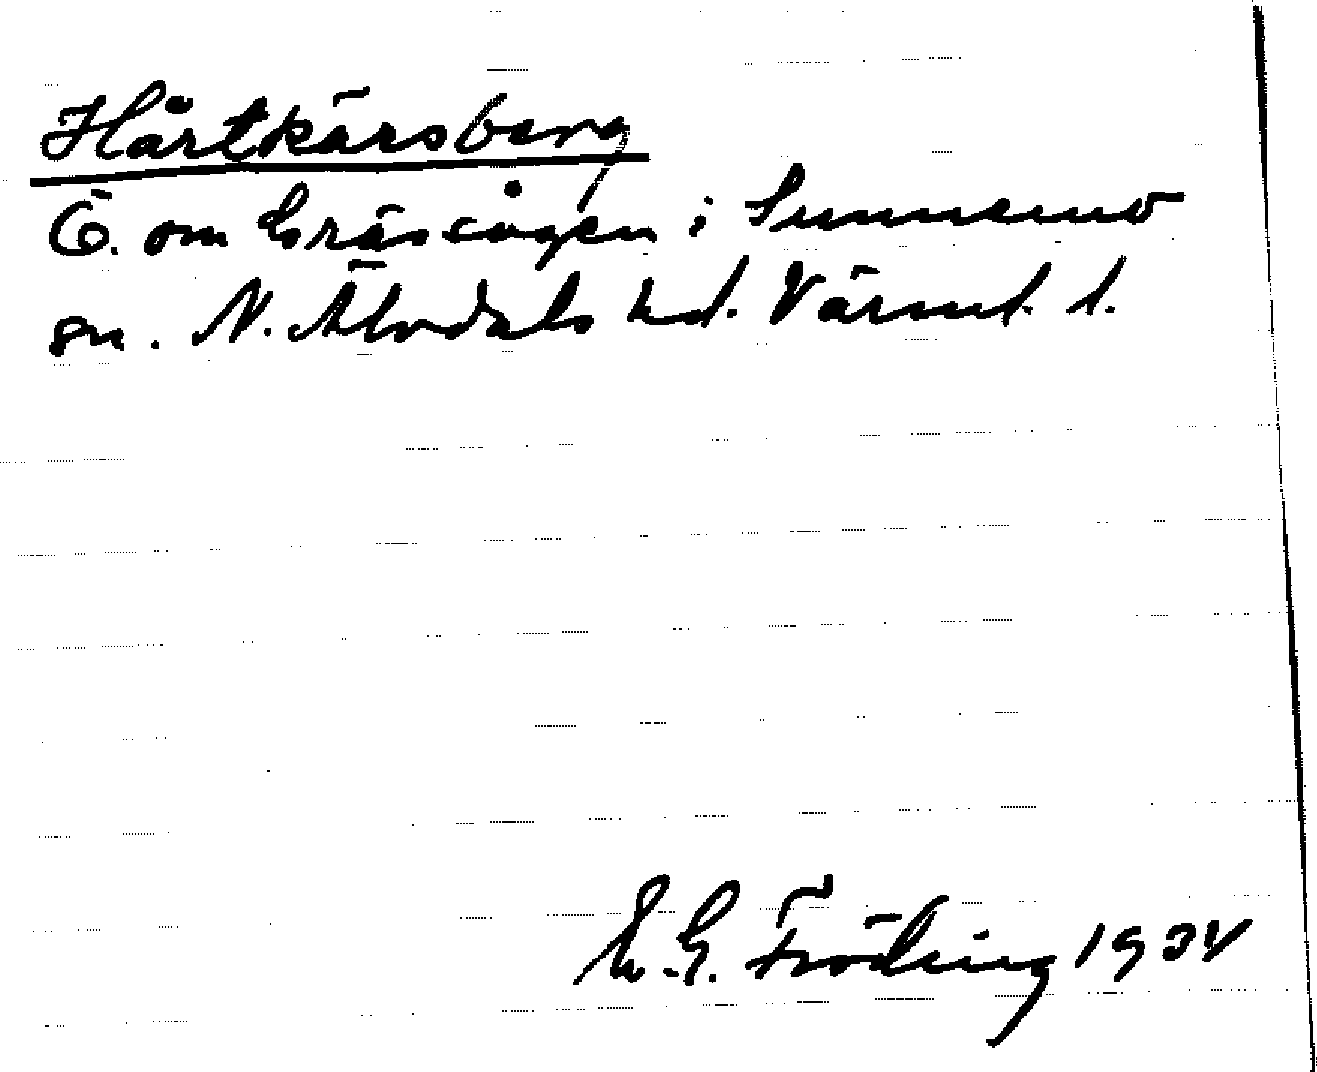 Hårtkärsberg
Ö. om Gräsvågen i Sunnemo
sn. N. Älvdals hd. Värml. l.
G. Fröding 1934